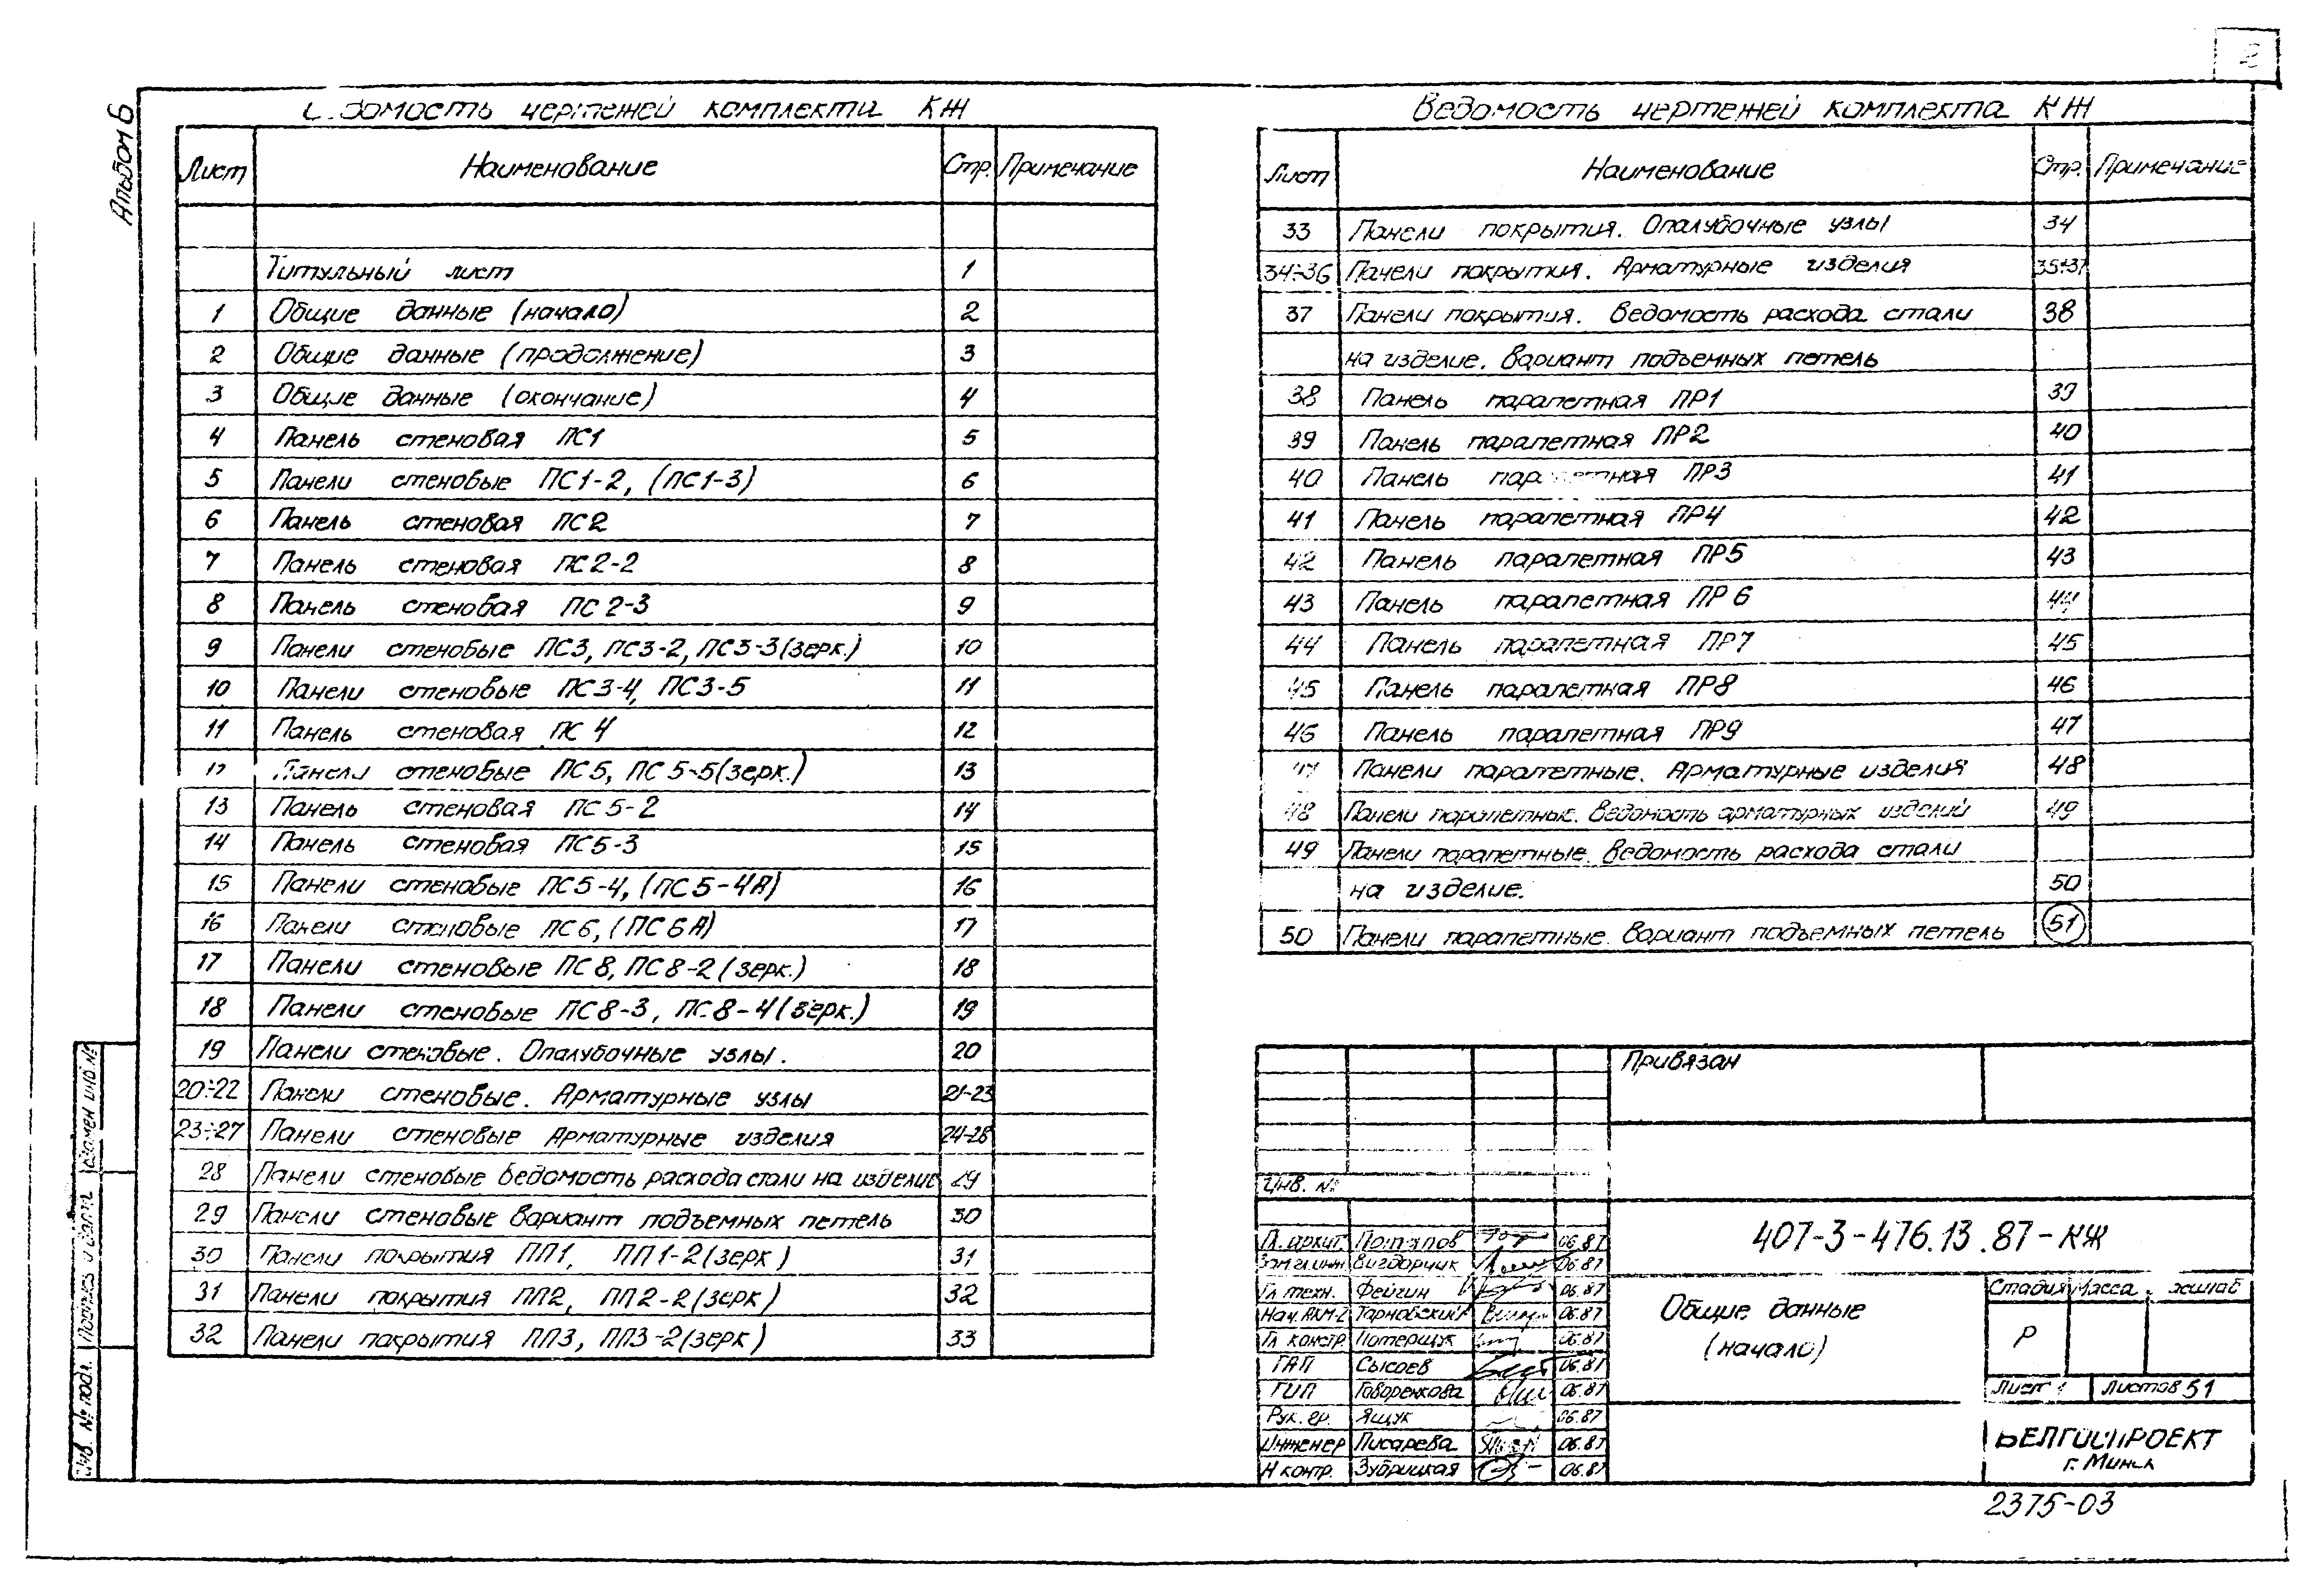 2
Альбом 6
домость чертежей комплекта КЖ
Лист Наименование Стр. Примечание
Титульный лист 1
1 Общие данные (начало) 2
2 Общие данные (продолжение) 3
3 Общие данные (окончание) 4
4 Панель стеновая ПС1 5
5 Панели стеновые ПС1-2, (ПС1-3) 6
6 Панель стеновая ПС2 7
7 Панель стеновая ПС2-2 8
8 Панель стеновая ПС2-3 9
9 Панели стеновые ПС3, ПС3-2, ПС3-3(зерк.) 10
10 Панели стеновые ПС3-4, ПС3-5 11
11 Панель стеновая ПС4 12
12 Панели стеновые ПС5, ПС5-5(зерк.) 13
13 Панель стеновая ПС5-2 14
14 Панель стеновая ПС5-3 15
15 Панели стеновые ПС5-4, (ПС5-4А) 16
16 Панели стеновые ПС6, (ПС6А) 17
17 Панели стеновые ПС8, ПС8-2(зерк.) 18
18 Панели стеновые ПС8-3, ПС8-4(зерк.) 19
19 Панели стеновые. Опалубочные узлы. 20
20÷22 Панели стеновые. Арматурные узлы 21-23
23÷27 Панели стеновые Арматурные изделия 24-28
28 Панели стеновые Ведомость расхода стали на изделие 29
29 Панели стеновые Вариант подъемных петель 30
30 Панели покрытия ПП1, ПП1-2(зерк) 31
31 Панели покрытия ПП2, ПП2-2(зерк) 32
32 Панели покрытия ПП3, ПП3-2(зерк) 33
Ведомость чертежей комплекта КЖ
Лист Наименование Стр. Примечание
33 Панели покрытия. Опалубочные узлы 34
34÷36 Панели покрытия. Арматурные изделия 35÷37
37 Панели покрытия. Ведомость расхода стали 38
на изделие. Вариант подъемных петель
38 Панель парапетная ПР1 39
39 Панель парапетная ПР2 40
40 Панель парапетная ПР3 41
41 Панель парапетная ПР4 42
42 Панель парапетная ПР5 43
43 Панель парапетная ПР6 44
44 Панель парапетная ПР7 45
45 Панель парапетная ПР8 46
46 Панель парапетная ПР9 47
47 Панели парапетные. Арматурные изделия 48
48 Панели парапетные. Ведомость арматурных изделий 49
49 Панели парапетные. Ведомость расхода стали
на изделие. 50
50 Панели парапетные. Вариант подъемных петель 51
Привязан
Инв. №
407-3-476.13.87-КЖ
Общие данные
(начало)
Стадия Масса
Р
Лист 1 Листов 51
БЕЛГИПРОЕКТ
г. Минск
Гл. архит. Потапов 06.87
Зам гл.инж Вигдорчик 06.87
Гл техн. Фейгин 06.87
Нач.АКМ-2 Тарновский 06.87
Гл констр. Потерщук 06.87
ГАП Сысоев 06.87
ГИП Говоренкова 06.87
Рук. гр. Ящук 06.87
Инженер Писарева 06.87
Н контр. Зубрицкая 06.87
Взамен инв.№
Подпись и дата
Инв. № подл.
2375-03